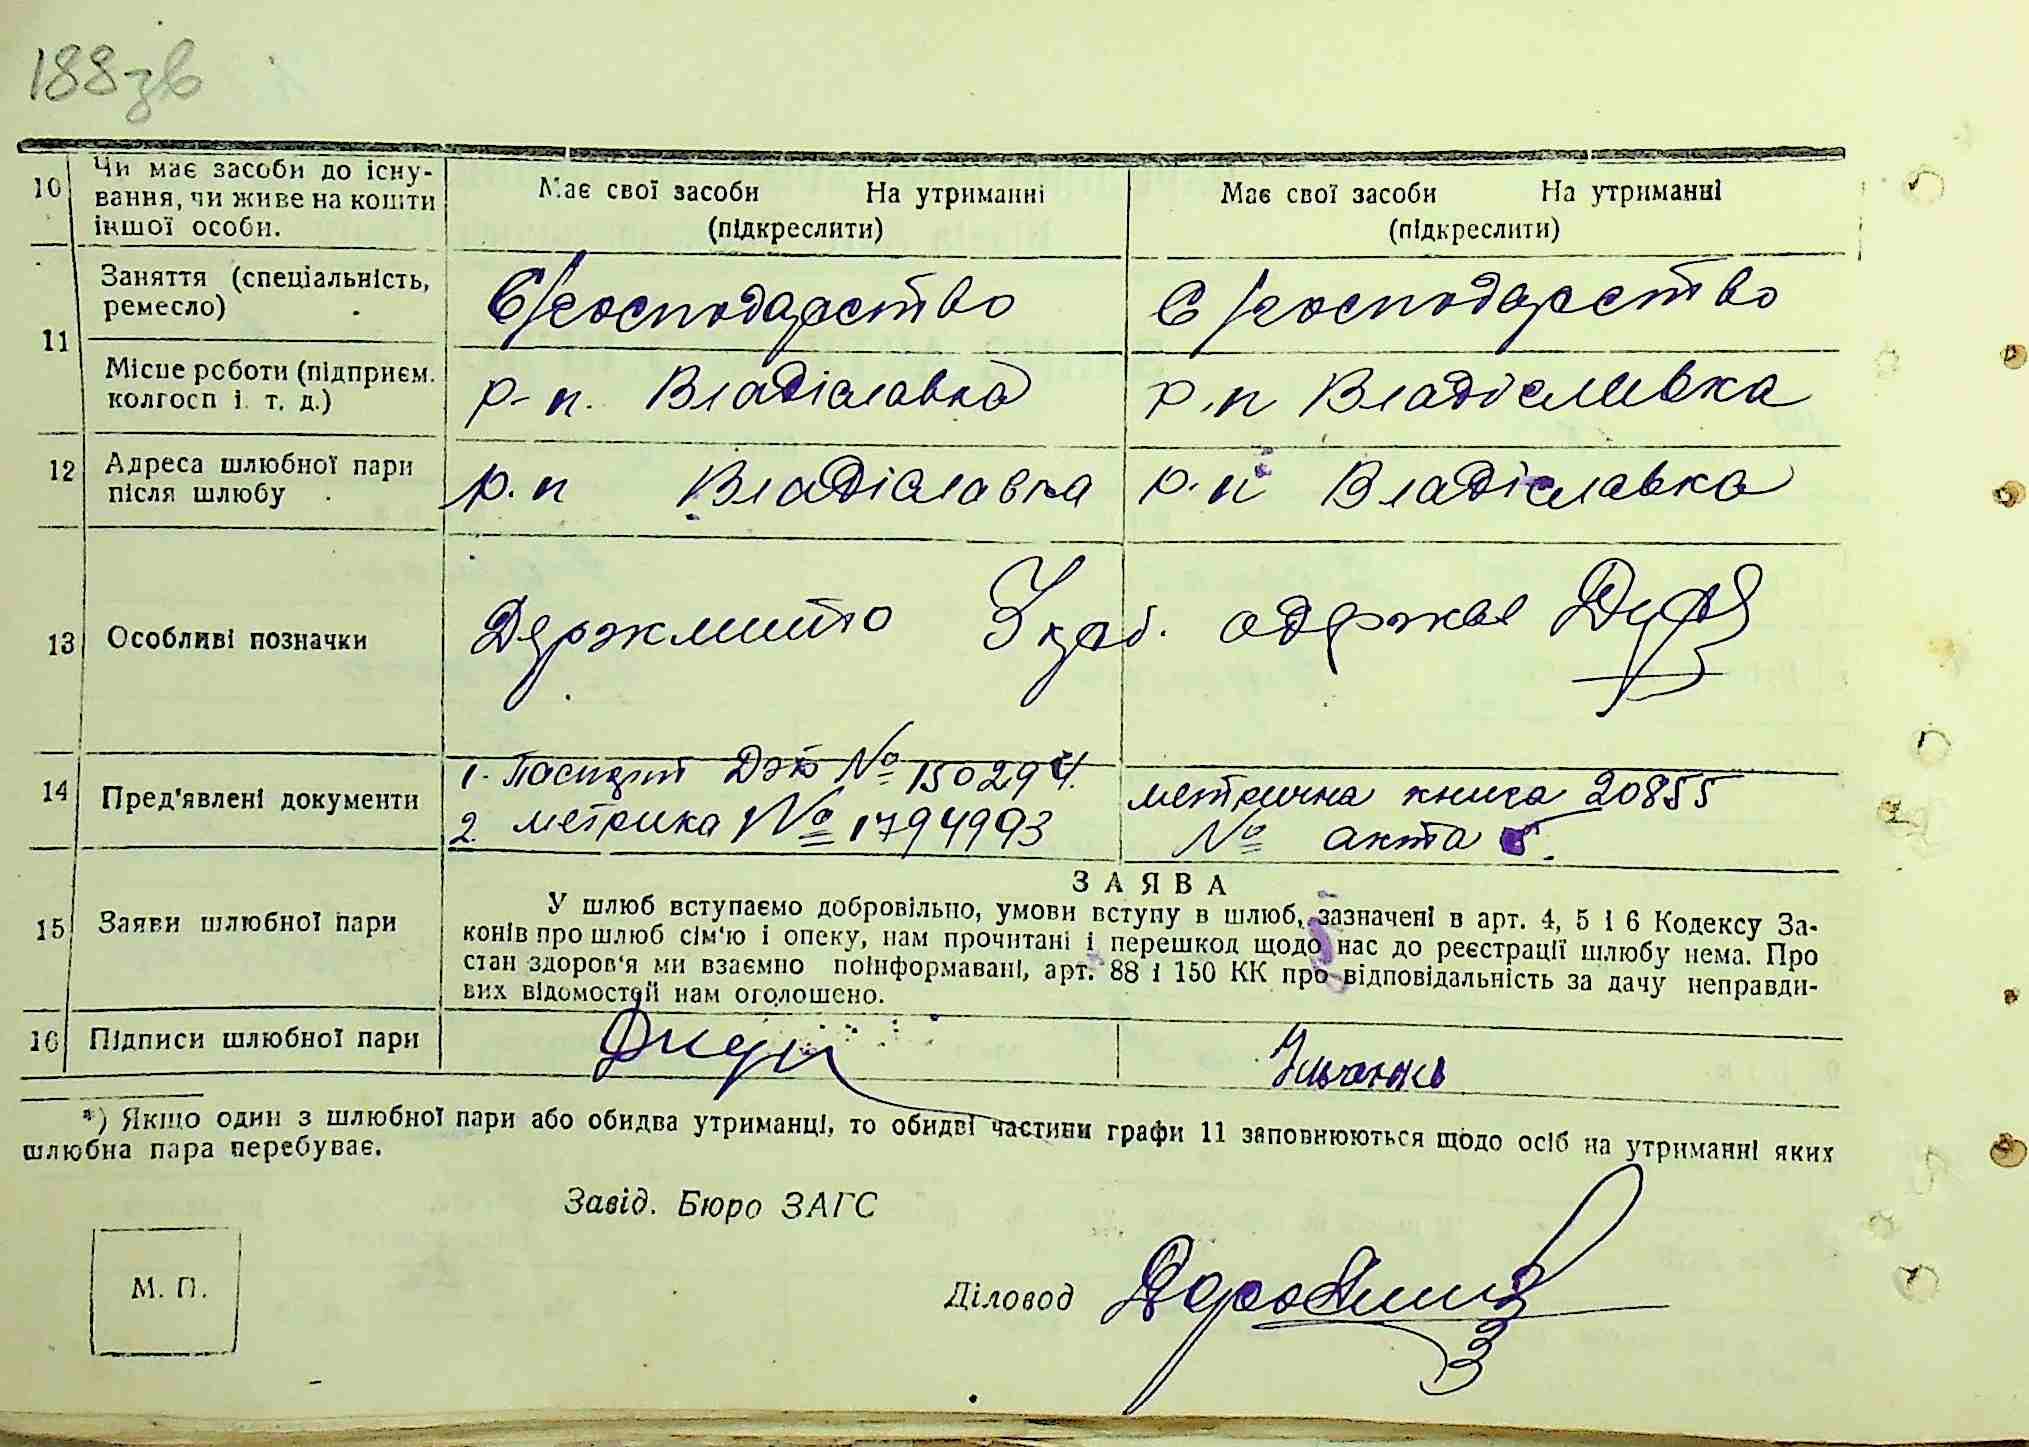 188зв
10 Чи має засоби до існу-
вання, чи живе на кошти
іншої особи.
Має свої засоби На утриманні
(підкреслити)
Має свої засоби На утриманні
(підкреслити)
11
Заняття (спеціальність,
ремесло)
С/господарство
С/господарство
Місце роботи (підприєм.
колгосп і. т. д.)
р-п. Владіславка
р.п Владіславка
12 Адреса шлюбної пари
після шлюбу
р.п Владіславка
р.п Владіславка
13 Особливі позначки
Держмито 3 крб. одержав
14 Пред'явлені документи
1. Паспорт № 150294.
2. метрика № 1794993
метрична книга 20855
№ акта 5.
15 Заяви шлюбної пари
ЗАЯВА
У шлюб вступаємо добровільно, умови вступу в шлюб, зазначені в арт. 4, 5 і 6 Кодексу За-
конів про шлюб сім'ю і опеку, нам прочитані і перешкод щодо нас до реєстрації шлюбу нема. Про
стан здоров'я ми взаємно поінформавані, арт. 88 і 150 КК про відповідальність за дачу неправди-
вих відомостей нам оголошено.
16 Підписи шлюбної пари
*) Якщо один з шлюбної пари або обидва утриманці, то обидві частини графи 11 заповнюються щодо осіб на утриманні яких
шлюбна пара перебуває.
Завід. Бюро ЗАГС
М. П.
Діловод